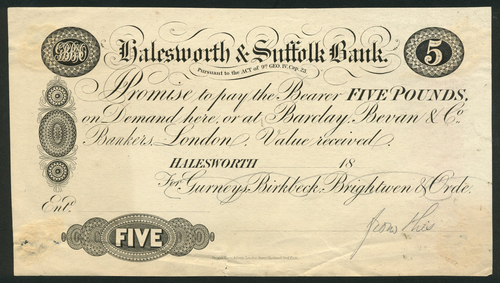 Halesworth & Suffolk Bank.
5
Pursuant to the ACT of 9th GEO. IV. Cap. 23.
I Promise to pay the Bearer FIVE POUNDS,
on Demand here, or at Barclay, Bevan & Co.
Bankers, London. Value received.
HALESWORTH 18
For Gurneys, Birkbeck, Brightwen & Orde.
Entd.
FIVE